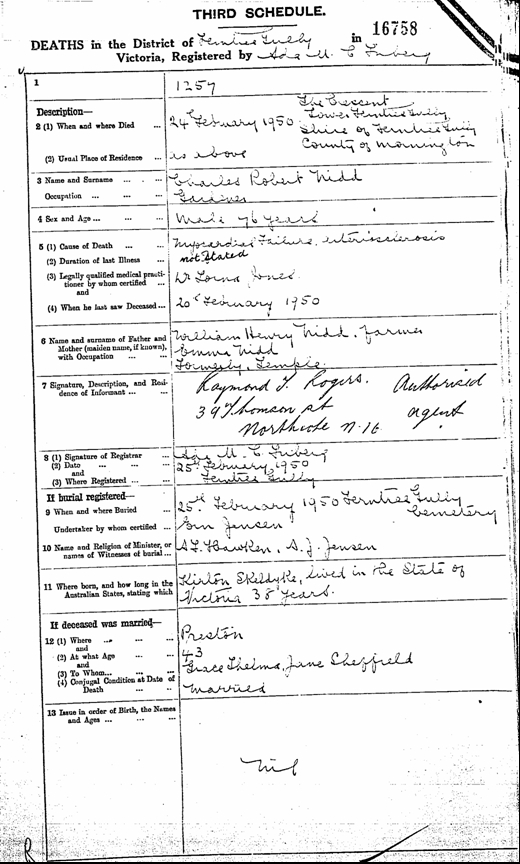 THIRD SCHEDULE.
16758
DEATHS in the District of Ferntree Gully in
Victoria, Registered by Ada M. C. Friberg
1 1257
Description—
2 (1) When and where Died ... 24 February 1950 The Crescent
Lower Ferntree Gully
Shire of Ferntree Gully
County of Mornington
(2) Usual Place of Residence ... as above
3 Name and Surname ... Charles Robert Nidd
Occupation ... Gardener
4 Sex and Age ... Male 76 years
5 (1) Cause of Death ... Myocardial Failure, arteriosclerosis
(2) Duration of last Illness ... not stated
(3) Legally qualified medical practi-
tioner by whom certified ... Dr Lorna Jones
and
(4) When he last saw Deceased ... 20th February 1950
6 Name and surname of Father and
Mother (maiden name, if known),
with Occupation ...
William Henry Nidd. farmer
Emma Nidd
Formerly Temple
7 Signature, Description, and Resi-
dence of Informant ...
Raymond T. Rogers. Authorised
39 Thomson st agent
Northcote N.16
8 (1) Signature of Registrar ... Ada M. C. Friberg
(2) Date ... 25th February, 1950
and
(3) Where Registered ... Ferntree Gully
If burial registered—
9 When and where Buried ... 25th February 1950 Ferntree Gully
Cemetery
Undertaker by whom certified ... Jensen
10 Name and Religion of Minister, or
names of Witnesses of burial ... Hawken, S. J. Jensen
11 Where born, and how long in the
Australian States, stating which
Kirton Skeldyke, lived in the State of
Victoria 38 years.
If deceased was married—
12 (1) Where ... Preston
and
(2) At what Age ... 43
and
(3) To Whom ... Grace Thelma Jane Sheffield
(4) Conjugal Condition at Date of
Death ... Married
13 Issue in order of Birth, the Names
and Ages ...
Nil